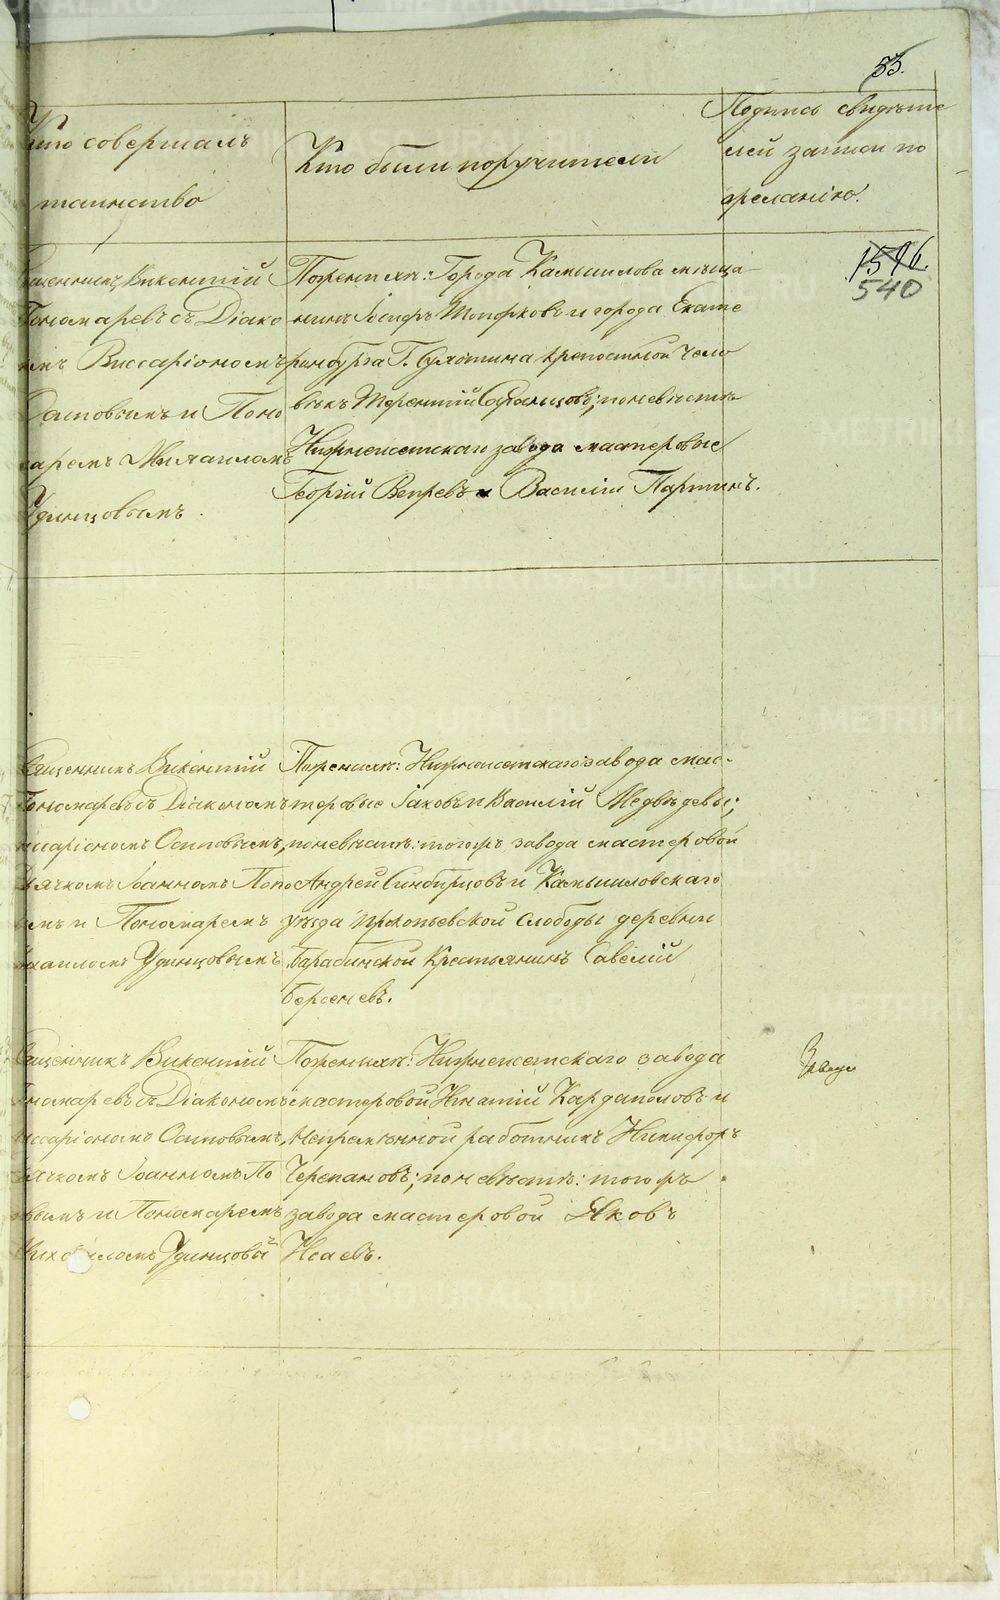 53.
Кто совершалъ
таинство
Кто были поручители
Подпись свидѣте
лей записи по
желанію.
1596
540
Священникъ Викентій
Пономаревъ съ Діако
номъ Виссаріономъ
Осиповымъ и Поно
маремъ Михаиломъ
Удинцовымъ.
По женихѣ: Города Камышлова мѣща
нинъ Іосифъ Топорковъ и города Екате
ринбурга Г. крепостной чело
вѣкъ Терентій по невѣстѣ
Нижнеисетскаго завода мастеровые
Георгій Вепревъ и Василій Партинъ.
Священникъ Викентій
Пономаревъ съ Діакономъ
Виссаріономъ Осиповымъ,
Дьячкомъ Іоанномъ Попо
вымъ и Пономаремъ
Михаиломъ Удинцовымъ
По женихѣ: Нижнеисетскаго завода мас-
теровые Іаковъ и Василій Медвѣдевы;
по невѣстѣ: тогожъ завода мастеровой
Андрей Синбирцовъ и Камышловскаго
уѣзда Прокопьевской слободы деревни
Барабинской Крестьянинъ Савелій
Берсеневъ.
Священникъ Викентій
Пономаревъ съ Діакономъ
Виссаріономъ Осиповымъ,
Дьячкомъ Іоанномъ По
повымъ и Пономаремъ
Михаиломъ Удинцовы
По женихѣ: Нижнеисетскаго завода
мастеровой Игнатій Кардаполовъ и
Непремѣнной работникъ Никифоръ
Черепановъ; по невѣстѣ: тогожъ
завода мастеровой Яковъ
Исаевъ.
METRIKI.GASO-URAL.RU